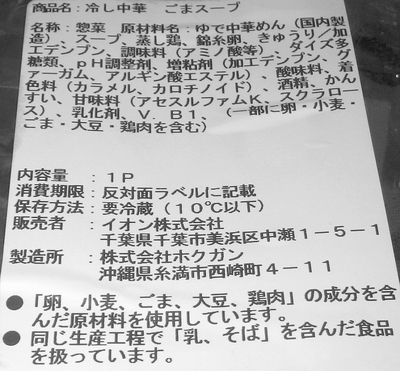 商品名：冷し中華　ごまスープ
名称：惣菜　原材料名：ゆで中華めん（国内製
造）、スープ、蒸し鶏、錦糸卵、きゅうり／加
工デンプン、調味料（アミノ酸等）、ダイズ多
糖類、pH調整剤、増粘剤（加工デンプン、キサ
ンタンガム、アルギン酸エステル）、酸味料、着
色料（カラメル、カロチノイド）、酒精、かん
すい、甘味料（アセスルファムK、スクラロー
ス）、乳化剤、V．B1、（一部に卵・小麦・
ごま・大豆・鶏肉を含む）
内容量：1P
消費期限：反対面ラベルに記載
保存方法：要冷蔵（10℃以下）
販売者：イオン株式会社
千葉県千葉市美浜区中瀬1－5－1
製造所：株式会社ホクガン
沖縄県糸満市西崎町4－11
●「卵、小麦、ごま、大豆、鶏肉」の成分を含
んだ原材料を使用しています。
●同じ生産工程で「乳、そば」を含んだ食品
を扱っています。